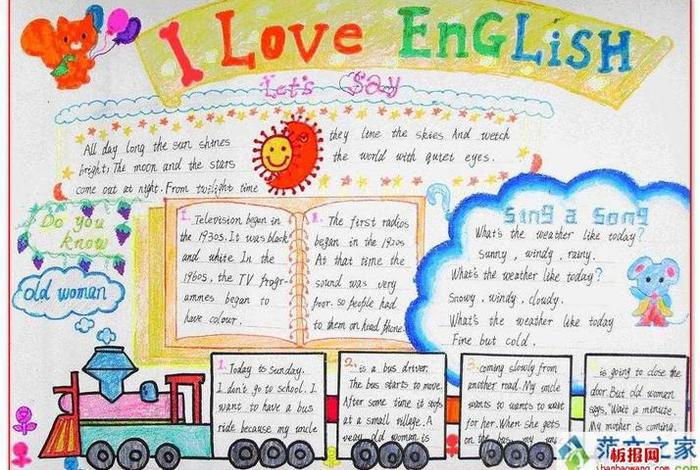 I Love EnGLiSH
Let's Say
All day long the sun shines
bright; The moon and the stars
come out at night. From twilight time
they line the skies. And wetch
the world with quiet eyes.
Do you
know
old woman
1. Television began in
the 1930s. It was black
and white. In the
1960s, the TV progr-
ammes began to
have colour.
The first radios
began in the 1920s
At that time the
sound was very
poor. so people had
to them on head phone
Sing a Song
What's the weather like today?
Sunny, windy, rainy.
What's the weather like today?
Snowy, windy, cloudy.
What's the weather like today
Fine but cold.
1. Today to sunday.
I don't go to school. I
want to have a bus
ride because my uncle
2. is a bus driver.
The bus starts to move.
After some time it stops
at a small village. A
very old woman is
3. coming slowly from
another road. My uncle
wants to wants to wait
for her. When she gets
on the bus, my
is going to close the
door. But old women
says, "Wait a minute.
My mother is coming.
范文之家
板报网
banbaowang.com